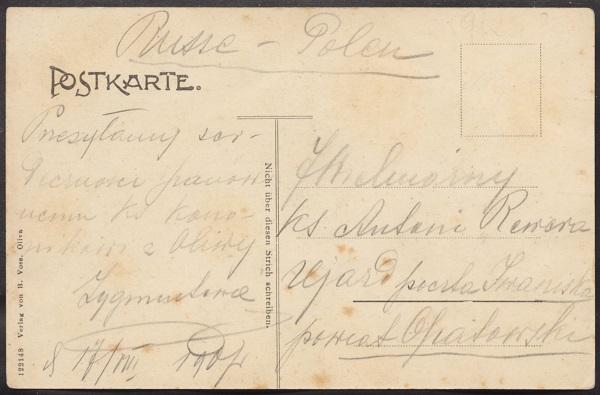 Russe - Polen
POSTKARTE.
Przesyłamy ser-
deczności panow
nemu ks kano-
nikowi z Oliwy
Zygmuntowie
d 17/VIII 1907
Nicht über diesen Strich schreiben.
JWielmożny
ks. Antoni Rewera
Ujazd poczta Iwaniska
powiat Opatowski
122143 Verlag von B. Voss, Oliva